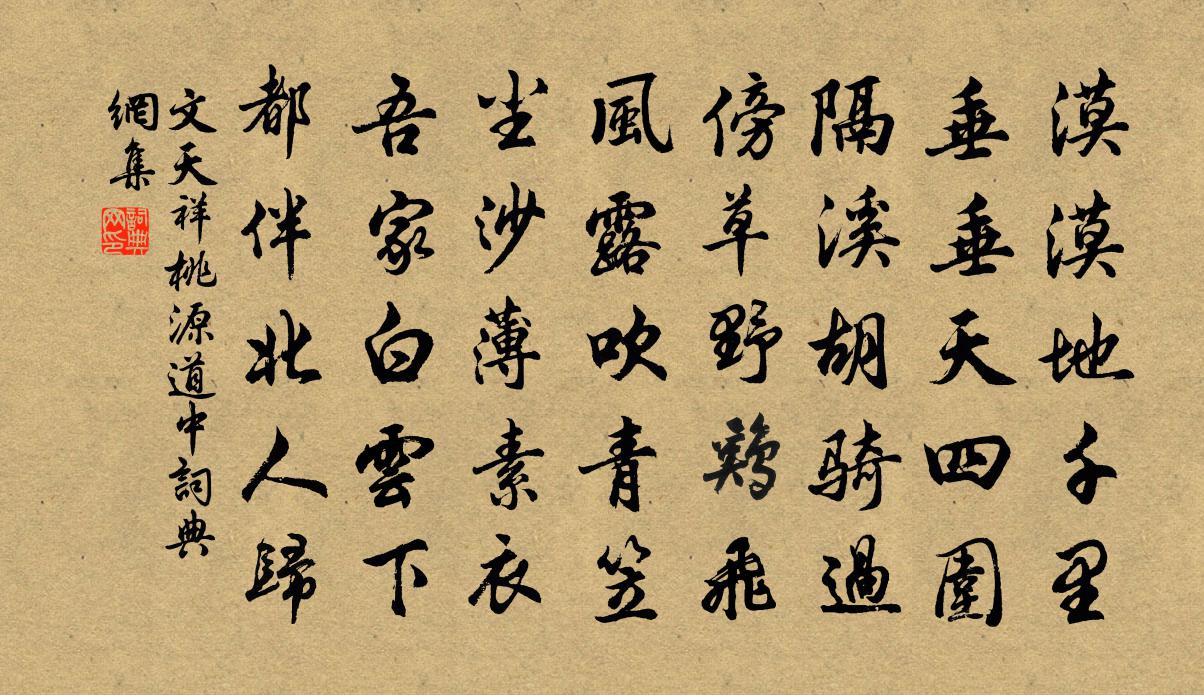 漠漠地千里
垂垂天四圍
隔溪胡騎過
傍草野鷄飛
風露吹青笠
尘沙薄素衣
吾家白雲下
都伴北人歸
文天祥桃源道中詞典
網集
詞典
网印